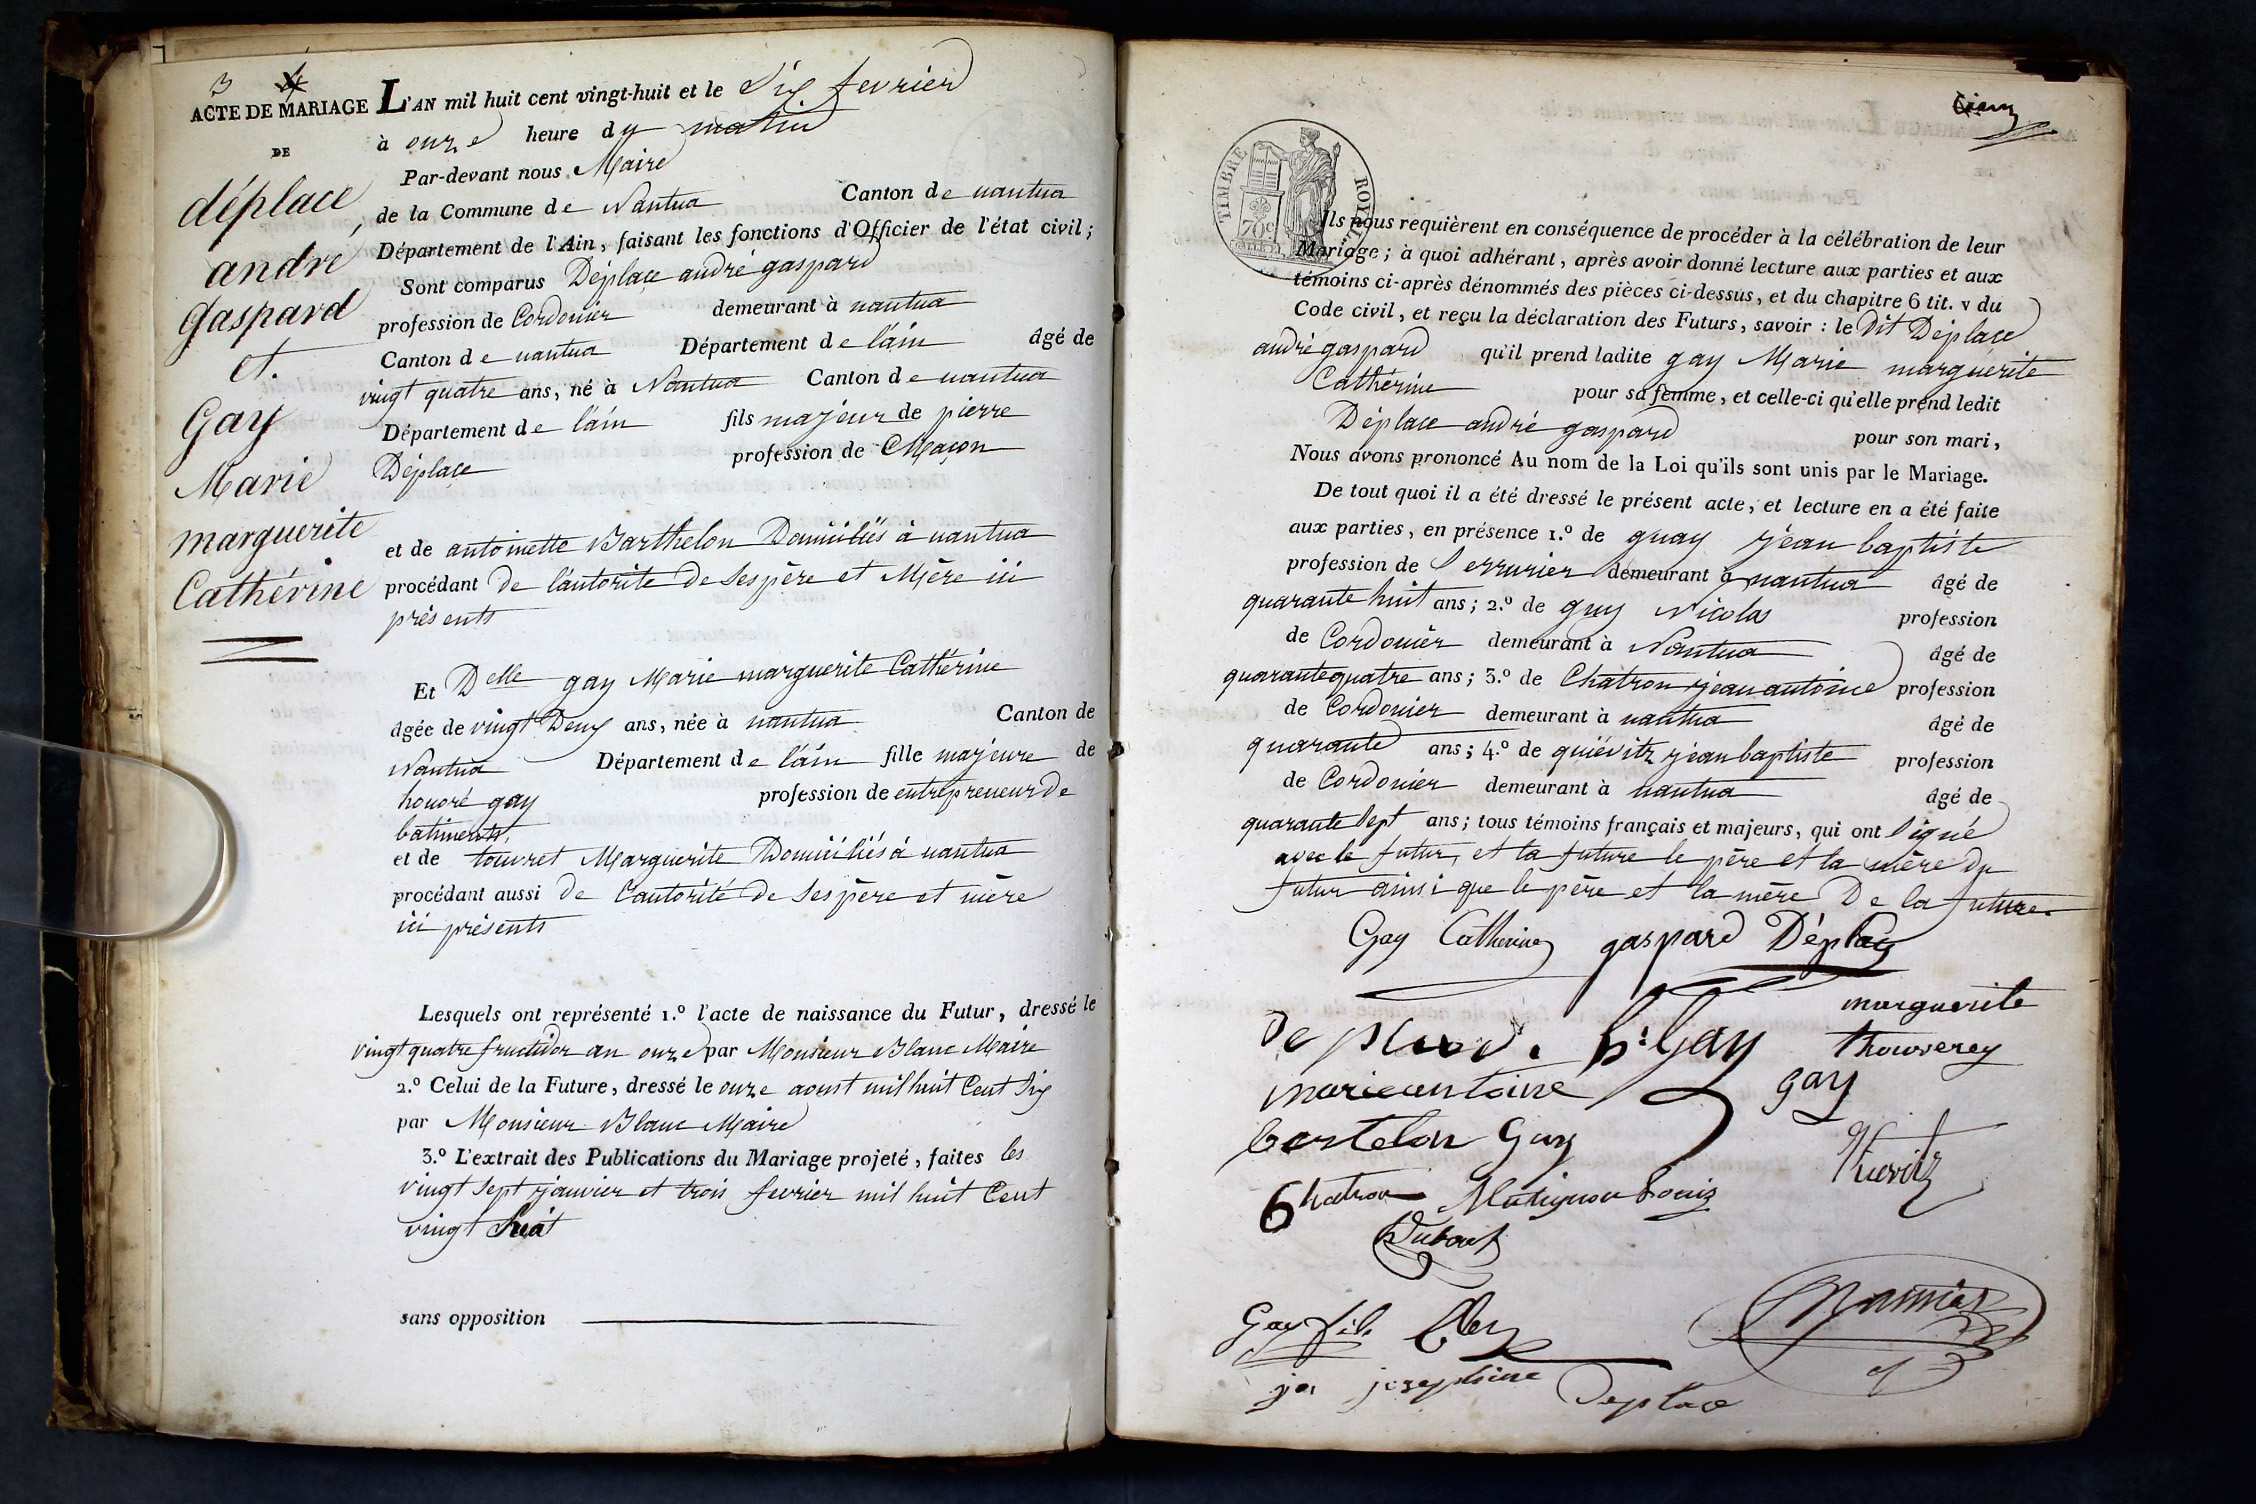 3
ACTE DE MARIAGE
DE
déplace
andré
Gaspard
et
Gay
Marie
marguerite
Cathérine
L'AN mil huit cent vingt-huit et le Six fevrier
à onze heure du matin
Par-devant nous Maire
de la Commune de Nantua Canton de nantua
Département de l'Ain, faisant les fonctions d'Officier de l'état civil;
Sont comparus Déplace andré gaspard
profession de Cordonier demeurant à nantua
Canton de nantua Département de l'ain âgé de
vingt quatre ans, né à Nantua Canton de nantua
Département de l'ain fils majeur de pierre
Déplace profession de Maçon
et de antoinette Barthelon Domiciliés à nantua
procédant de l'autorité de ses père et Mère ici
présents
Et Delle gay Marie marguerite Cathérine
âgée de vingt Deux ans, née à nantua Canton de
Nantua Département de l'ain fille majeure de
honoré gay profession de entrepreneur de
batiments,
et de touvret Marguerite Domiciliés à nantua
procédant aussi de l'autorité de ses père et mère
ici présents
Lesquels ont représenté 1.º l'acte de naissance du Futur, dressé le
vingt quatre fructidor an onze par Monsieur Blanc Maire
2.º Celui de la Future, dressé le onze aoust mil huit Cent Six
par Monsieur Blanc Maire
3.º L'extrait des Publications du Mariage projeté, faites les
vingt Sept janvier et trois fevrier mil huit Cent
vingt huit
sans opposition
TIMBRE ROYAL
70 c
Ils nous requièrent en conséquence de procéder à la célébration de leur
Mariage; à quoi adhérant, après avoir donné lecture aux parties et aux
témoins ci-après dénommés des pièces ci-dessus, et du chapitre 6 tit. v du
Code civil, et reçu la déclaration des Futurs, savoir: le dit Déplace
andré gaspard qu'il prend ladite gay Marie marguerite
Cathérine pour sa femme, et celle-ci qu'elle prend ledit
Déplace andré gaspard pour son mari,
Nous avons prononcé Au nom de la Loi qu'ils sont unis par le Mariage.
De tout quoi il a été dressé le présent acte, et lecture en a été faite
aux parties, en présence 1.º de guay jean baptiste
profession de Serrurier demeurant à nantua âgé de
quarante huit ans; 2.º de guy Nicolas profession
de Cordonier demeurant à Nantua âgé de
quarante quatre ans; 3.º de Chatron jean antoine profession
de Cordonier demeurant à nantua âgé de
quarante ans; 4.º de quiévitz jean baptiste profession
de Cordonier demeurant à nantua âgé de
quarante Sept ans; tous témoins français et majeurs, qui ont Signé
avec le futur, et la future le père et la mère du
futur ainsi que le père et la mère De la future.
Gay Catherine gaspard Déplace
h: Gay marguerite
thouverey
marieantoine gay
bartelon Guy
Chatron Louis
Gay fils
josephine Deplace